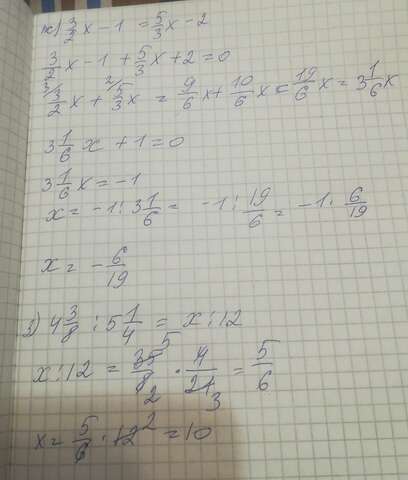 ж) 3/2 x - 1 = 5/3 x - 2
3/2 x - 1 + 5/3 x + 2 = 0
3/ 3/2 x + 2/ 5/3 x = 9/6 x + 10/6 x = 19/6 x = 3 1/6 x
3 1/6 x + 1 = 0
3 1/6 x = -1
x = -1 : 3 1/6 = -1 : 19/6 = -1 · 6/19
x = - 6/19
з) 4 3/8 : 5 1/4 = x : 12
x : 12 = 35 5/8 2 · 4/21 3 = 5/6
x = 5/6 · 12 2 = 10